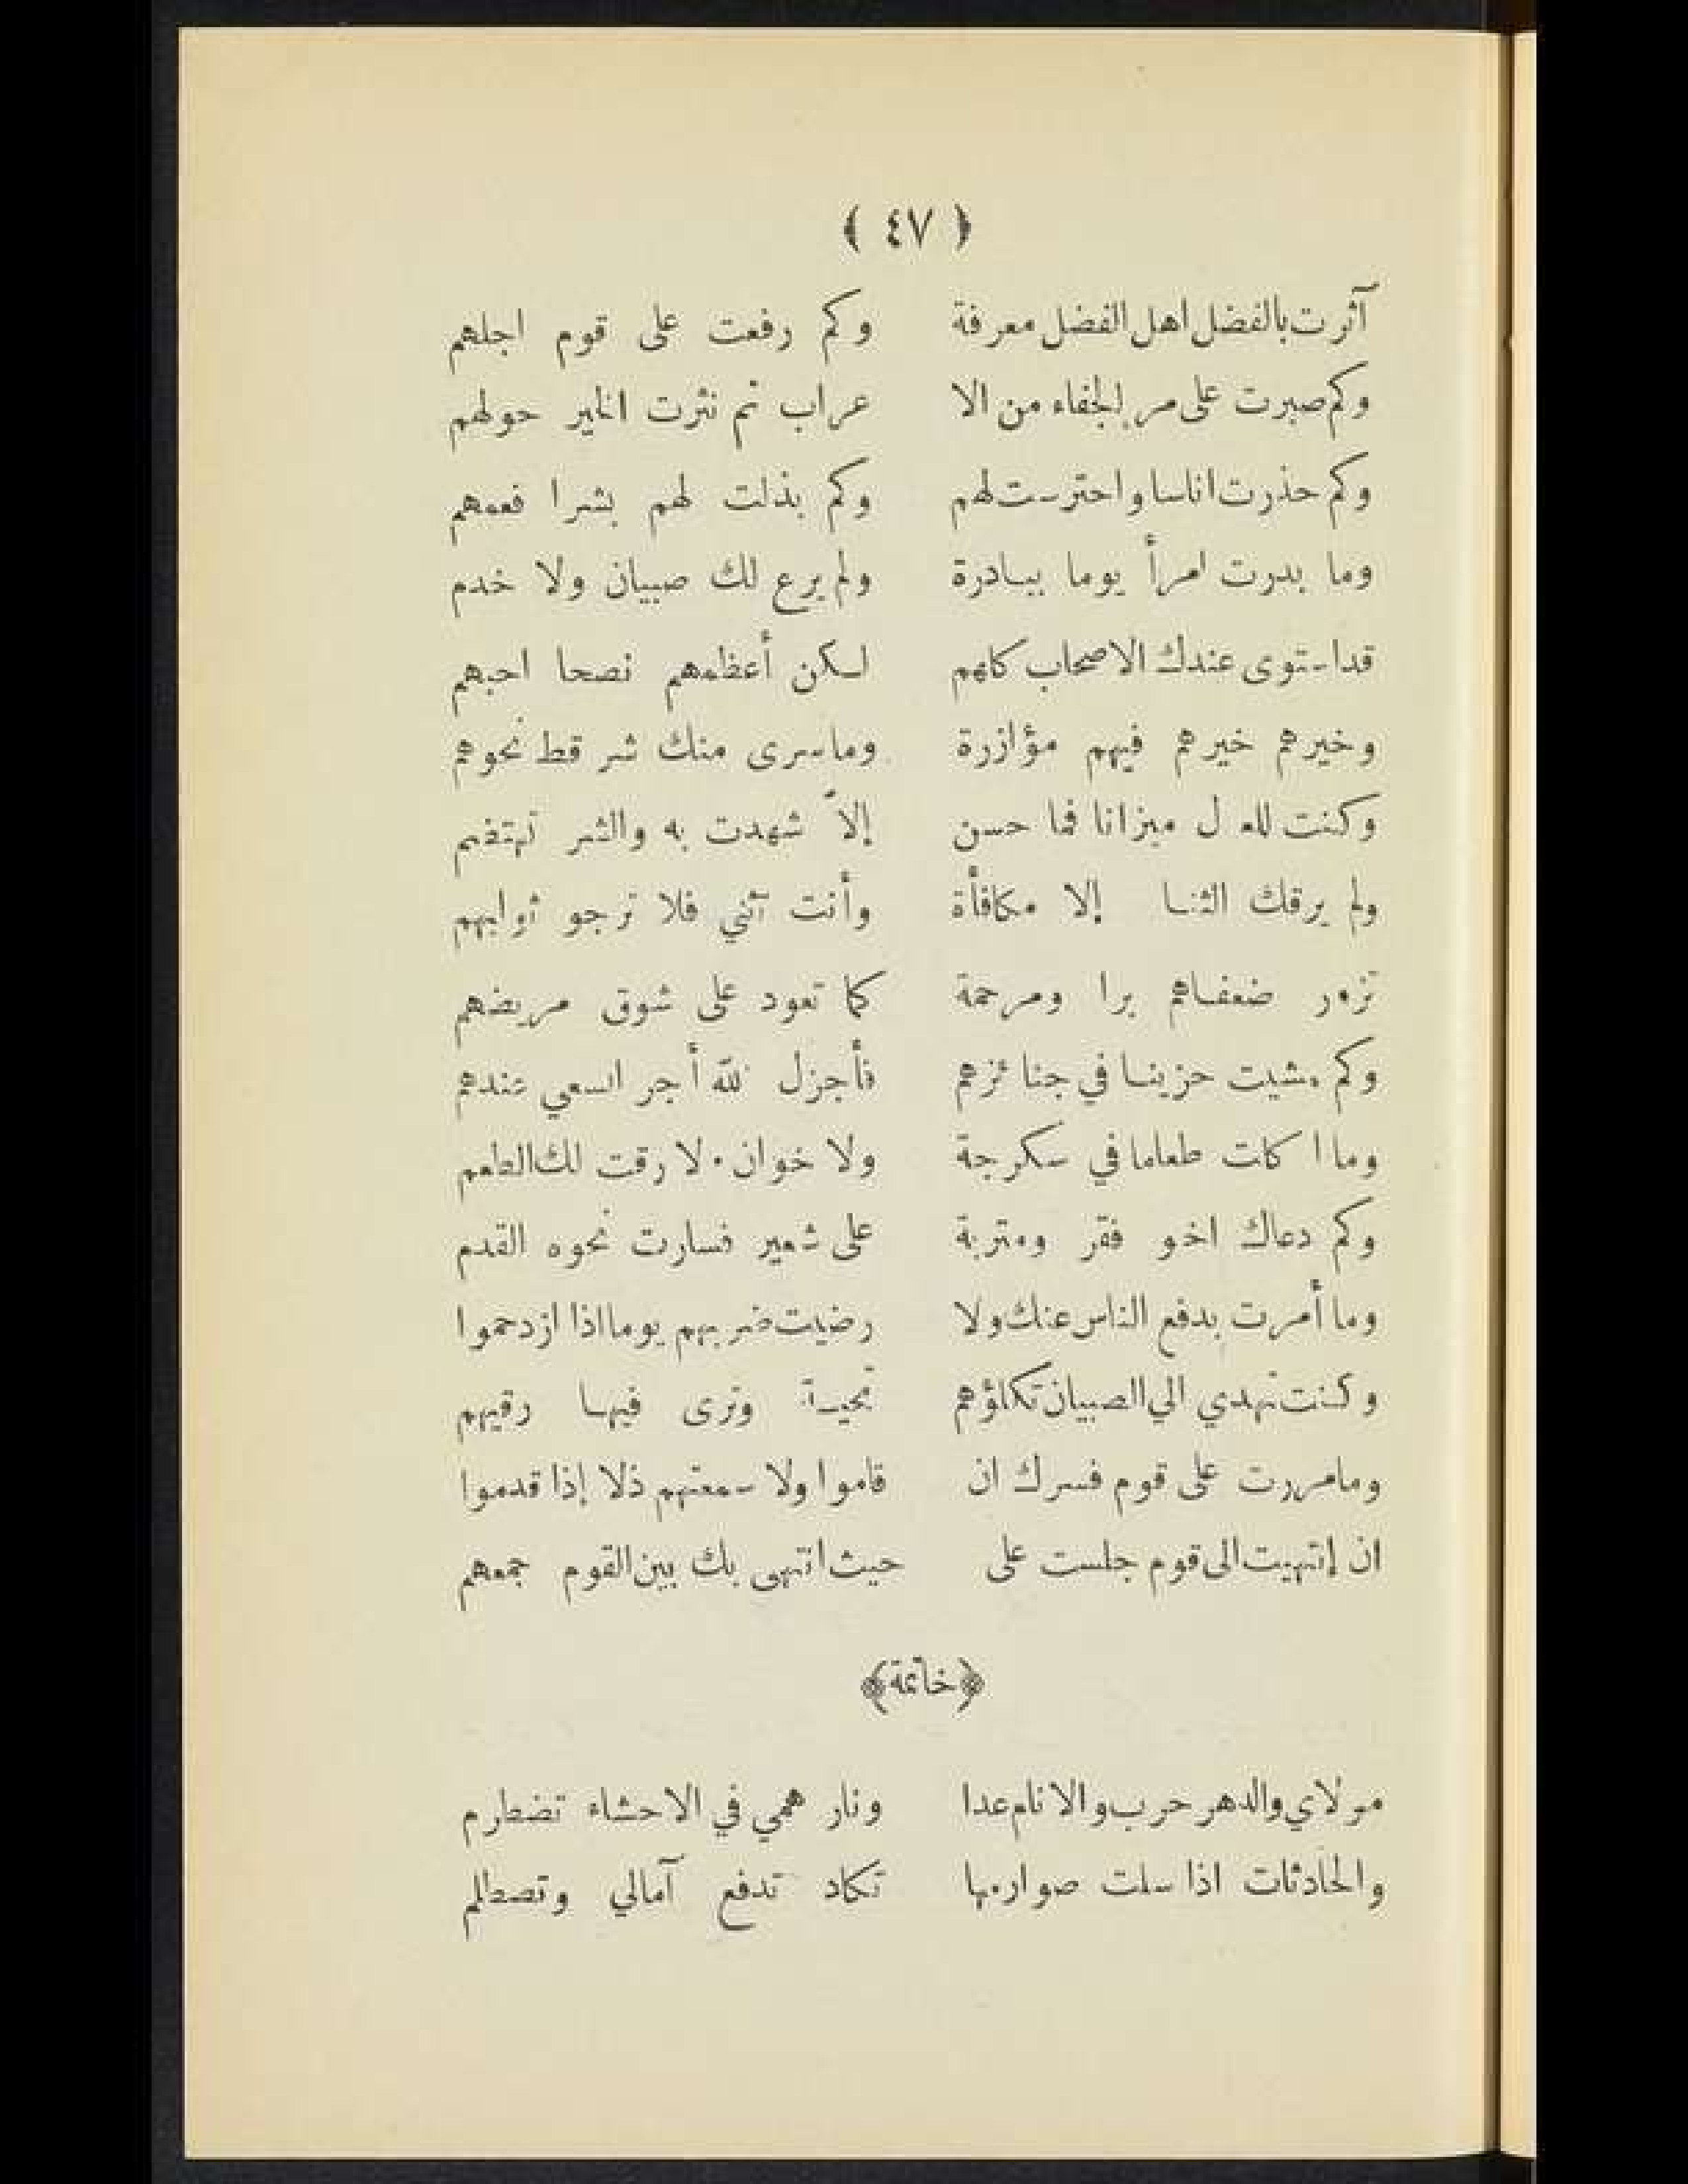 ﴿ ٤٧ ﴾
آثرت بالفضل اهل الفضل معرفة وكم رفعت على قوم اجلهم
وكم صبرت على مر الجفاء من الا عراب ثم نثرت الخير حولهم
وكم حذرت اناسا واحترست لهم وكم بذلت لهم بشرا فعمهم
وما بدرت امرأ يوما ببادرة ولم يرع لك صبيان ولا خدم
قد استوى عندك الاصحاب كلهم لكن أعظمهم نصحا احبهم
وخيرهم خيرهم فيهم مؤازرة وما سرى منك شر قط نحوهم
وكنت للعدل ميزانا فما حسن إلا شهدت به والشر تهتضم
ولم يرقك الثنا إلا مكافأة وأنت تثني فلا ترجو ثوابهم
تزور ضعفاهم برا ومرحمة كما تعود على شوق مريضهم
وكم مشيت حزينا في جنائزهم فأجزل الله أجر السعي عندهم
وما اكلت طعاما في سكرجة ولا خوان ولا رقت لك الطعم
وكم دعاك اخو فقر ومتربة على شعير فسارت نحوه القدم
وما أمرت بدفع الناس عنك ولا رضيت ضربهم يوما اذا ازدحموا
وكنت تهدي الي الصبيان تكلؤهم تحية وترى فيها رقيهم
وما مررت على قوم فسرك ان قاموا ولا سمعتهم ذلا إذا قدموا
ان إنتهيت الى قوم جلست على حيث انتهى بك بين القوم جمعهم
﴿خاتمة﴾
مولاي والدهر حرب والانام عدا ونار همي في الاحشاء تضطرم
والحادثات اذا سلت صوارمها تكاد تدفع آمالي وتصطلم